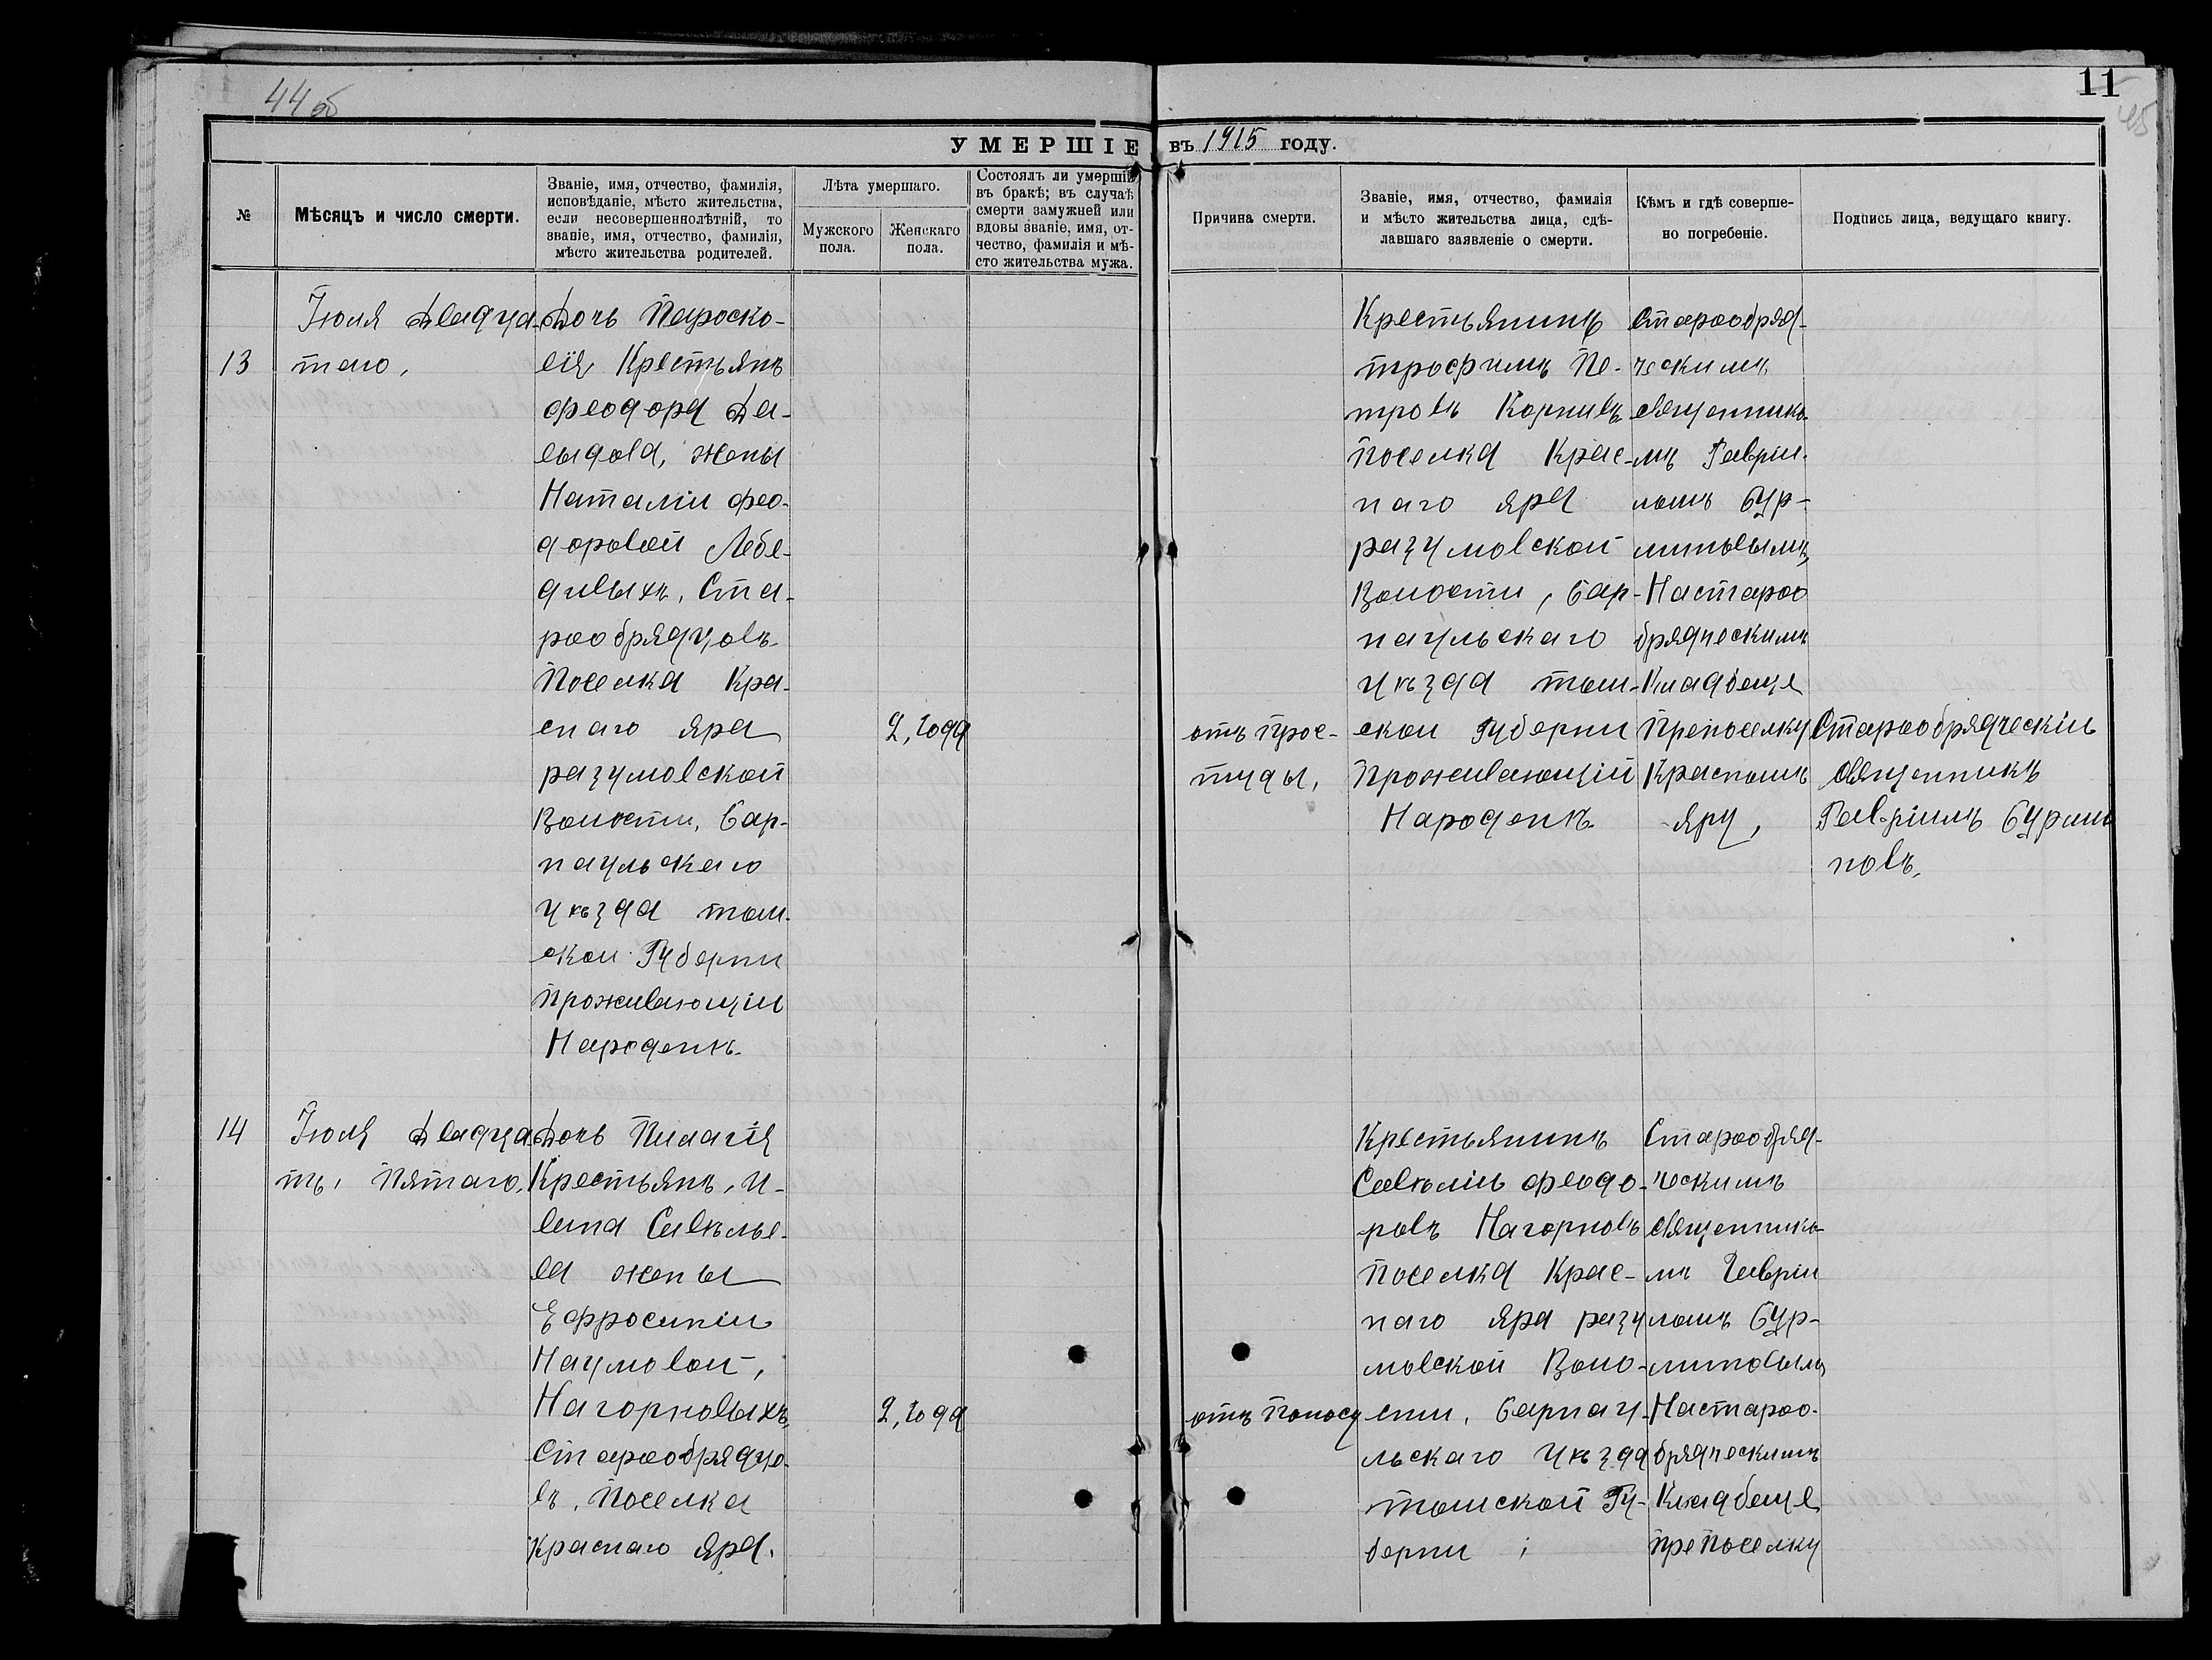 44 об
11
45
УМЕРШІЕ въ 1915 году.
№
Мѣсяцъ и число смерти.
Званіе, имя, отчество, фамилія,
исповѣданіе, мѣсто жительства,
если несовершеннолѣтній, то
званіе, имя, отчество, фамилія,
мѣсто жительства родителей.
Лѣта умершаго.
Мужского
пола.
Женскаго
пола.
Состоялъ ли умершій
въ бракѣ; въ случаѣ
смерти замужней или
вдовы званіе, имя, от-
чество, фамилія и мѣ-
сто жительства мужа.
Причина смерти.
Званіе, имя, отчество, фамилія
и мѣсто жительства лица, сдѣ-
лавшаго заявленіе о смерти.
Кѣмъ и гдѣ соверше-
но погребеніе.
Подпись лица, ведущаго книгу.
13
Іюля Двадца-
таго,
Дочь Пароско-
вія Крестьянъ
феодора Да-
выдова, жены
Наталіи фео-
доровой Лебе-
дивыхъ, Ста-
рообрядцовъ
Поселка Кра-
снаго яра
разумовской
Волости, бар-
наульскаго
Уѣзда том-
ской Губерни
проживающіи
Народенъ.
2, года
отъ прос-
туды,
Крестьянинъ
трофимъ Пе-
тровъ Корнивъ
Поселка Крас-
наго яра
разумовской
Волости, бар-
наульскаго
Уѣзда том-
скои Губерни
Проживающій
Народенъ.
Старообряд-
ческимъ
священнико-
мъ Гавріи-
ломъ бур-
миновымъ,
Настароо
брядческимъ
Кладбеще
Препоселку
Красномъ
яру,
Старообрядческіи
священникъ
Гавріилъ бурми
новъ,
14
Іюля Двадца
ть, Пятаго,
Дочь Пилагія
Крестьянъ, И-
вана Савѣлье-
ва жены
Ефросиніи
Наумовой,
Нагорновыхъ,
Старообрядцо-
въ, Поселка
Краснаго яра,
2, года
отъ Поносу
Крестьянинъ
Савѣліи феодо-
ровъ Нагорновъ
Поселка Крас-
наго яра разу
мовской Воло-
сти, барнау-
льскаго Уѣзда
томской Гу-
берни ;
Старообряд-
ческимъ
священнико-
мъ Гавріи
ломъ бур-
миновымъ
Настароо-
брядческимъ
Кладбеще
препоселку